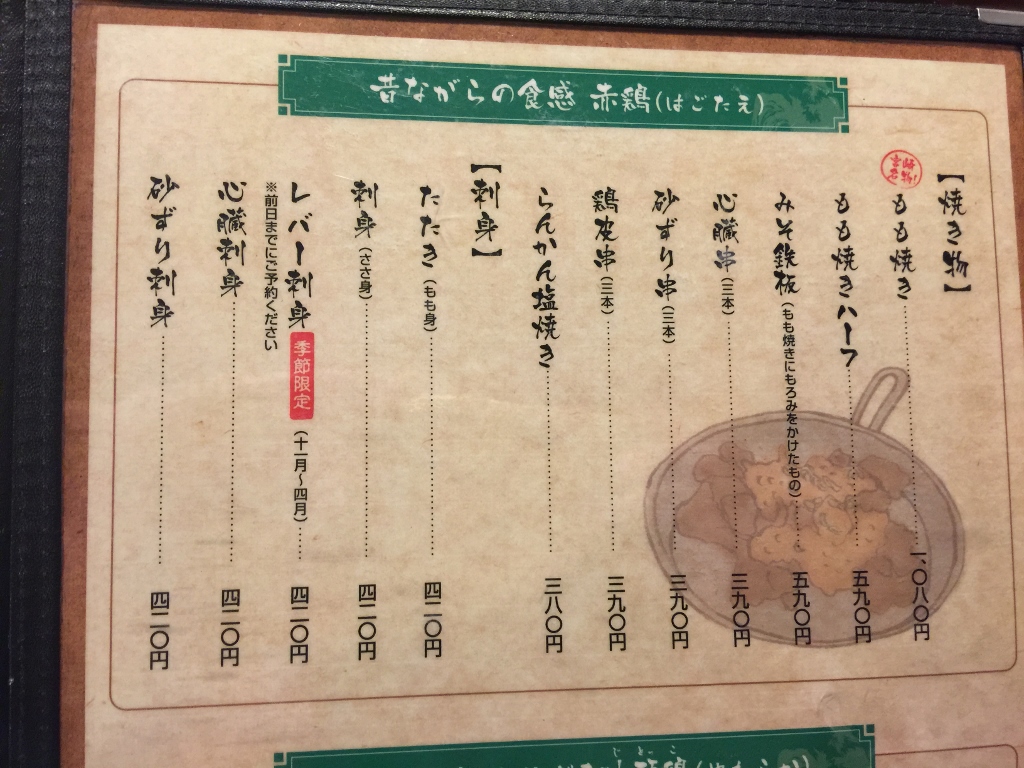 昔ながらの食感 赤鶏(はごたえ)
【焼き物】
宮崎名物!
もも焼き 一、〇八〇円
もも焼きハーフ 五九〇円
みそ鉄板(もも焼きにもろみをかけたもの) 五九〇円
心臓串(三本) 三九〇円
砂ずり串(三本) 三九〇円
鶏皮串(三本) 三九〇円
らんかん塩焼き 三八〇円
【刺身】
たたき(もも身) 四二〇円
刺身(ささ身) 四二〇円
レバー刺身 季節限定 (十一月〜四月) 四二〇円
※前日までにご予約ください
心臓刺身 四二〇円
砂ずり刺身 四二〇円
じとっこ